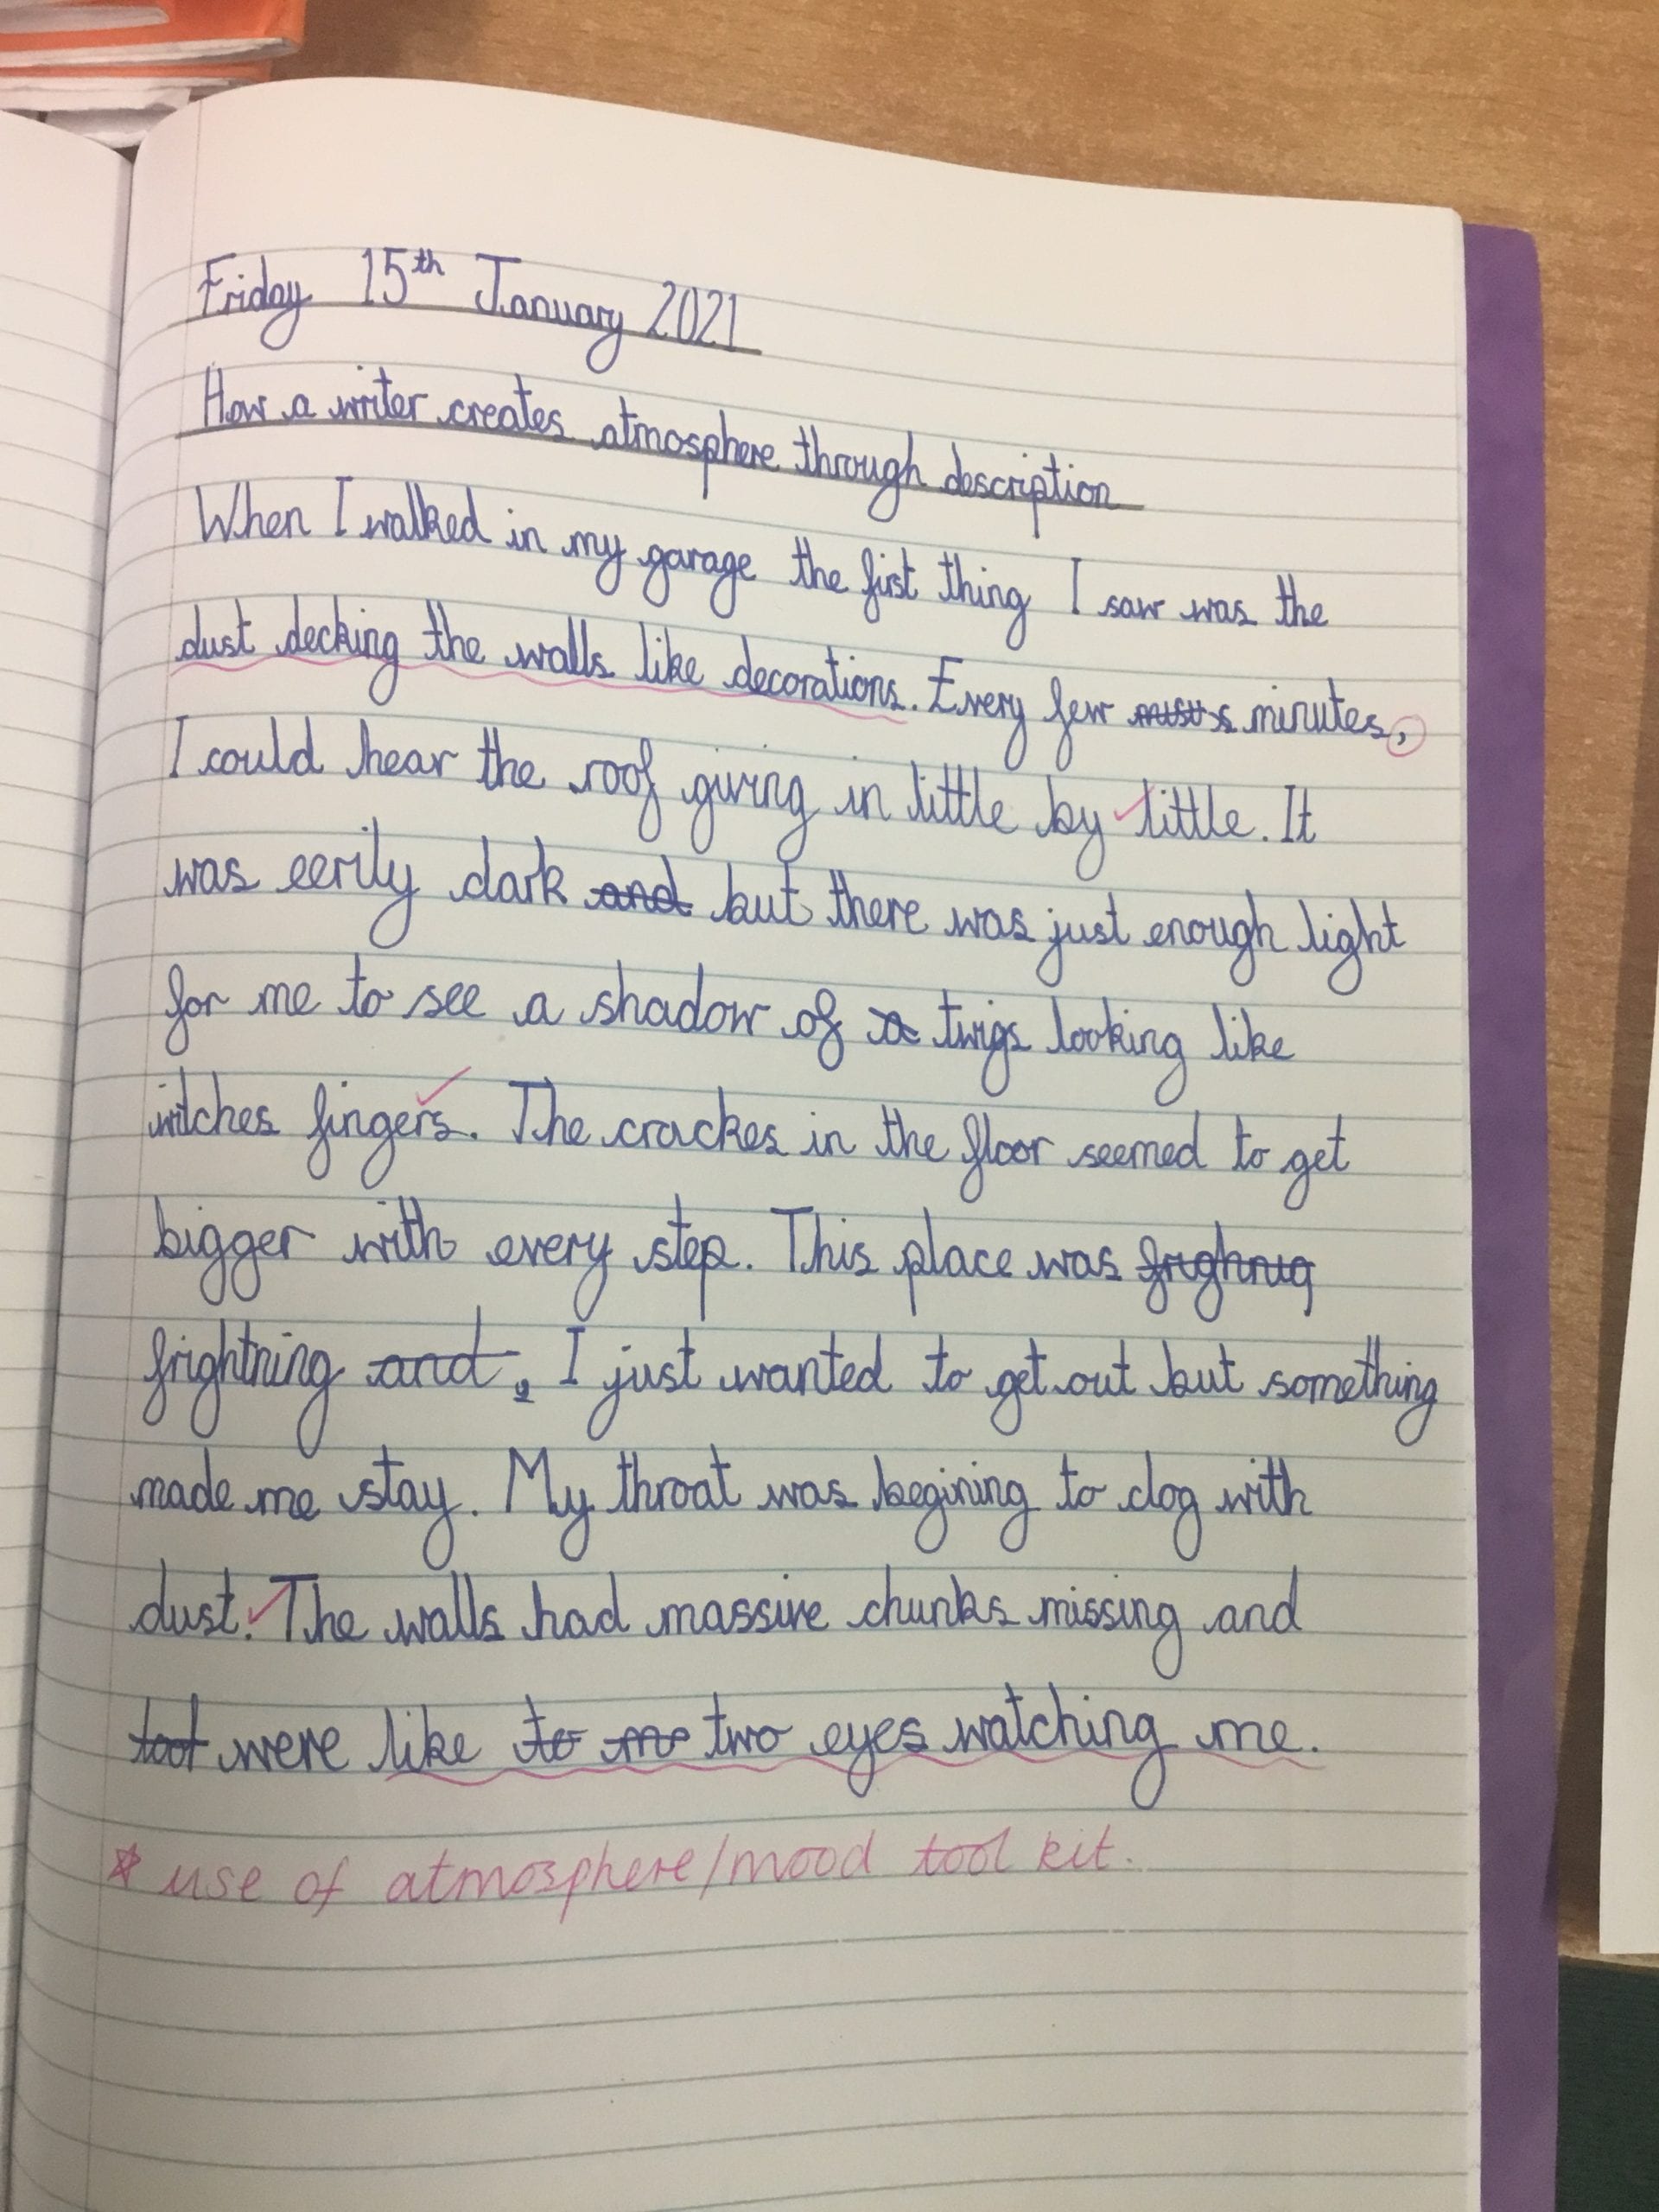 Friday 15th January 2021
How a writer creates atmosphere through description
When I walked in my garage the fist thing I saw was the
dust decking the walls like decorations. Every few minutes,
I could hear the roof giving in little by little. It
was eerily dark and but there was just enough light
for me to see a shadow of a twigs looking like
witches fingers. The crackes in the floor seemed to get
bigger with every step. This place was
frightning and, I just wanted to get out but something
made me stay. My throat was begining to clog with
dust. The walls had massive chunks missing and
toot were like to me two eyes watching me.
* use of atmosphere/mood tool kit.